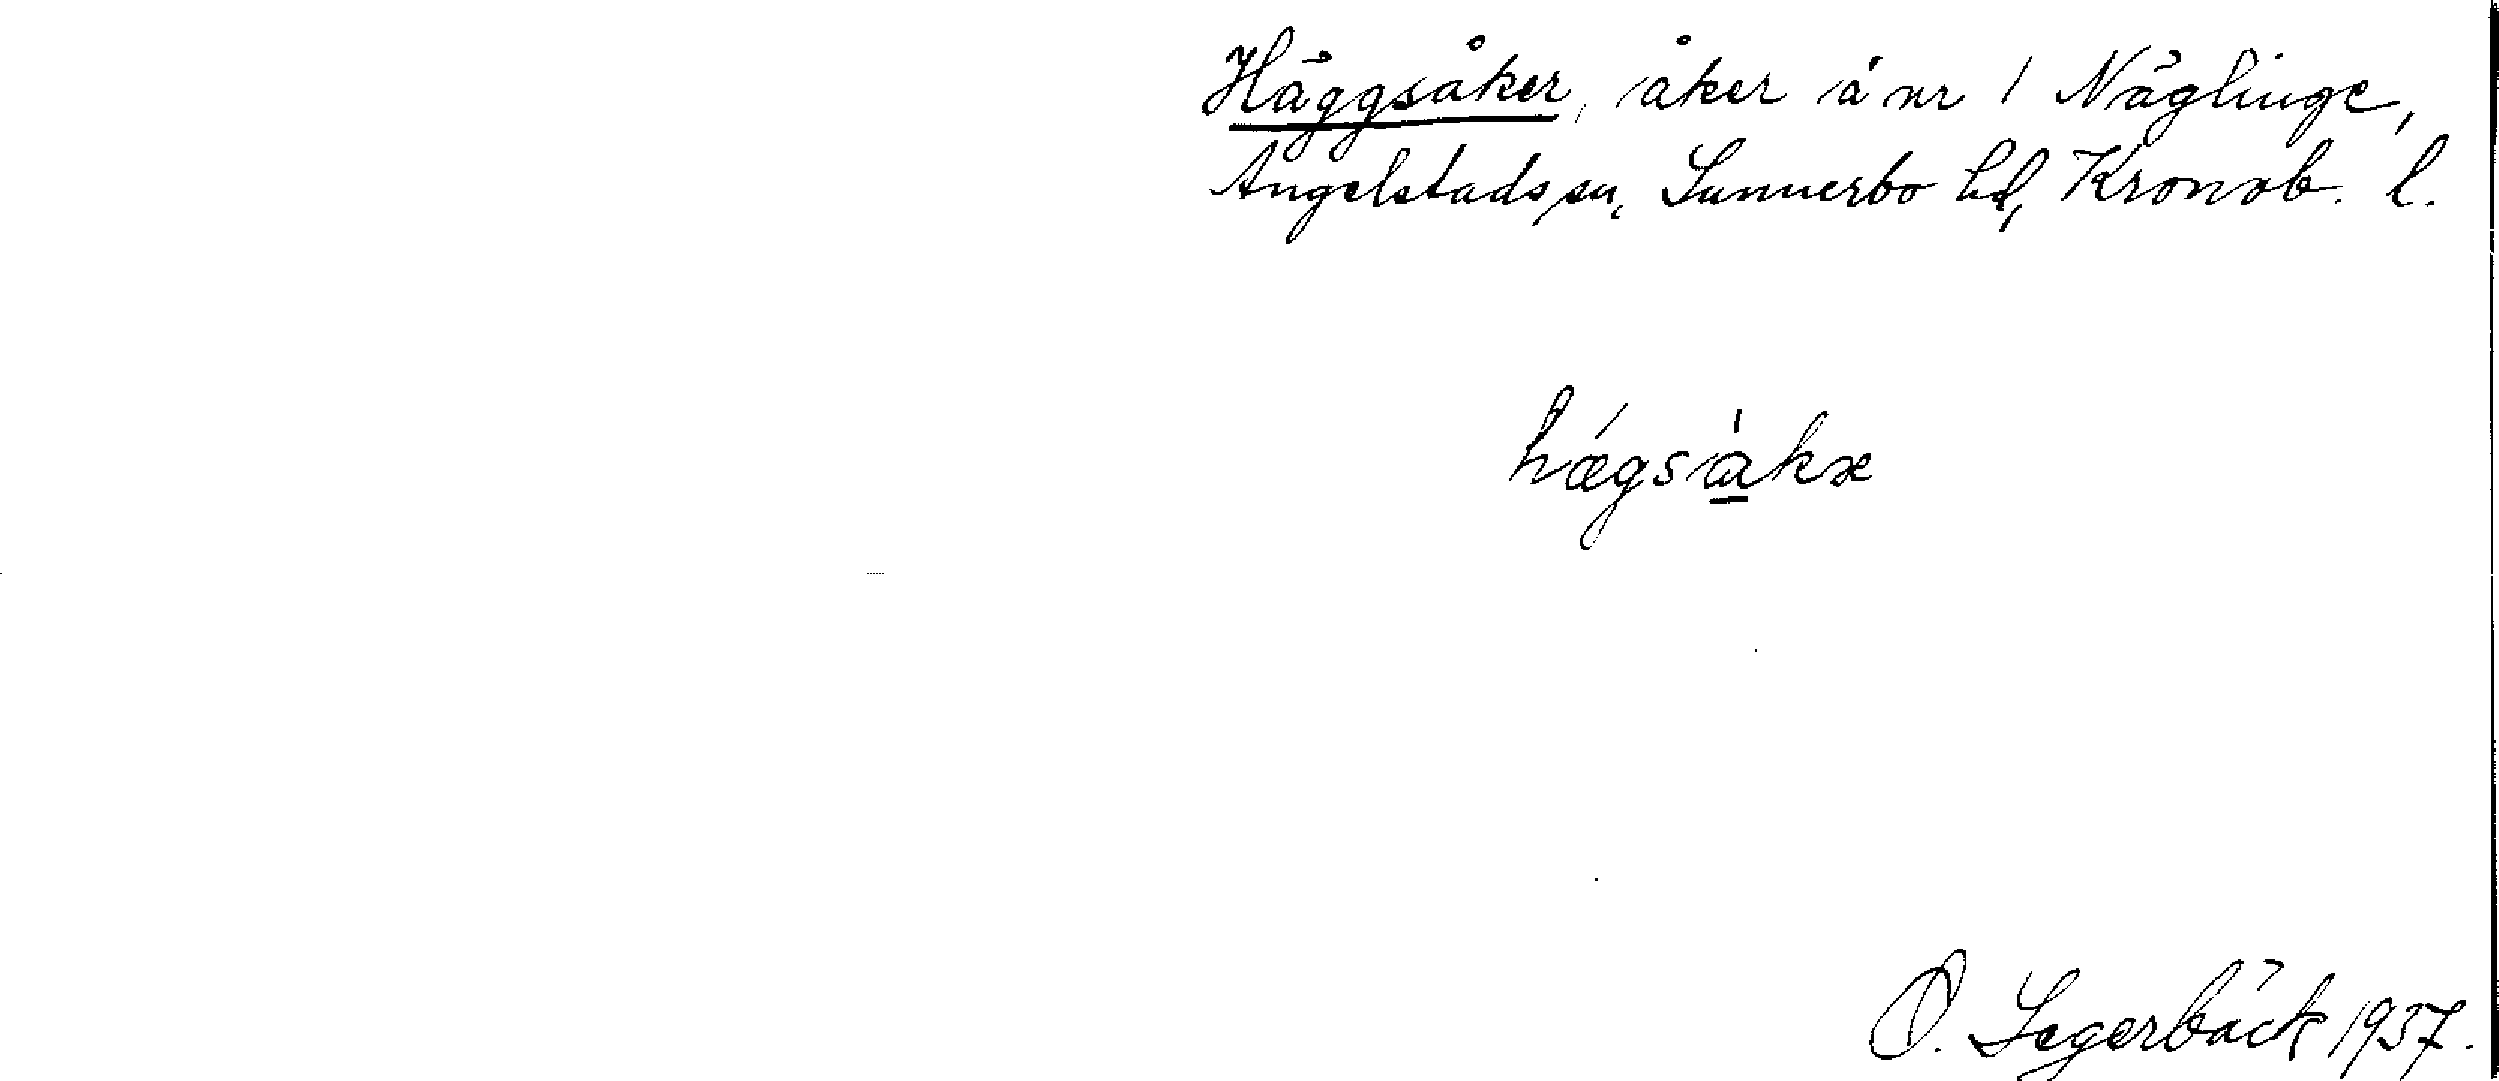 Häggsåker, åker å nr 1 Näglinge,
Angelstads sn, Sunnerbo hd, Kronob. l.
hǽgsa̲̍kæ
O. Segerbäck 1937.